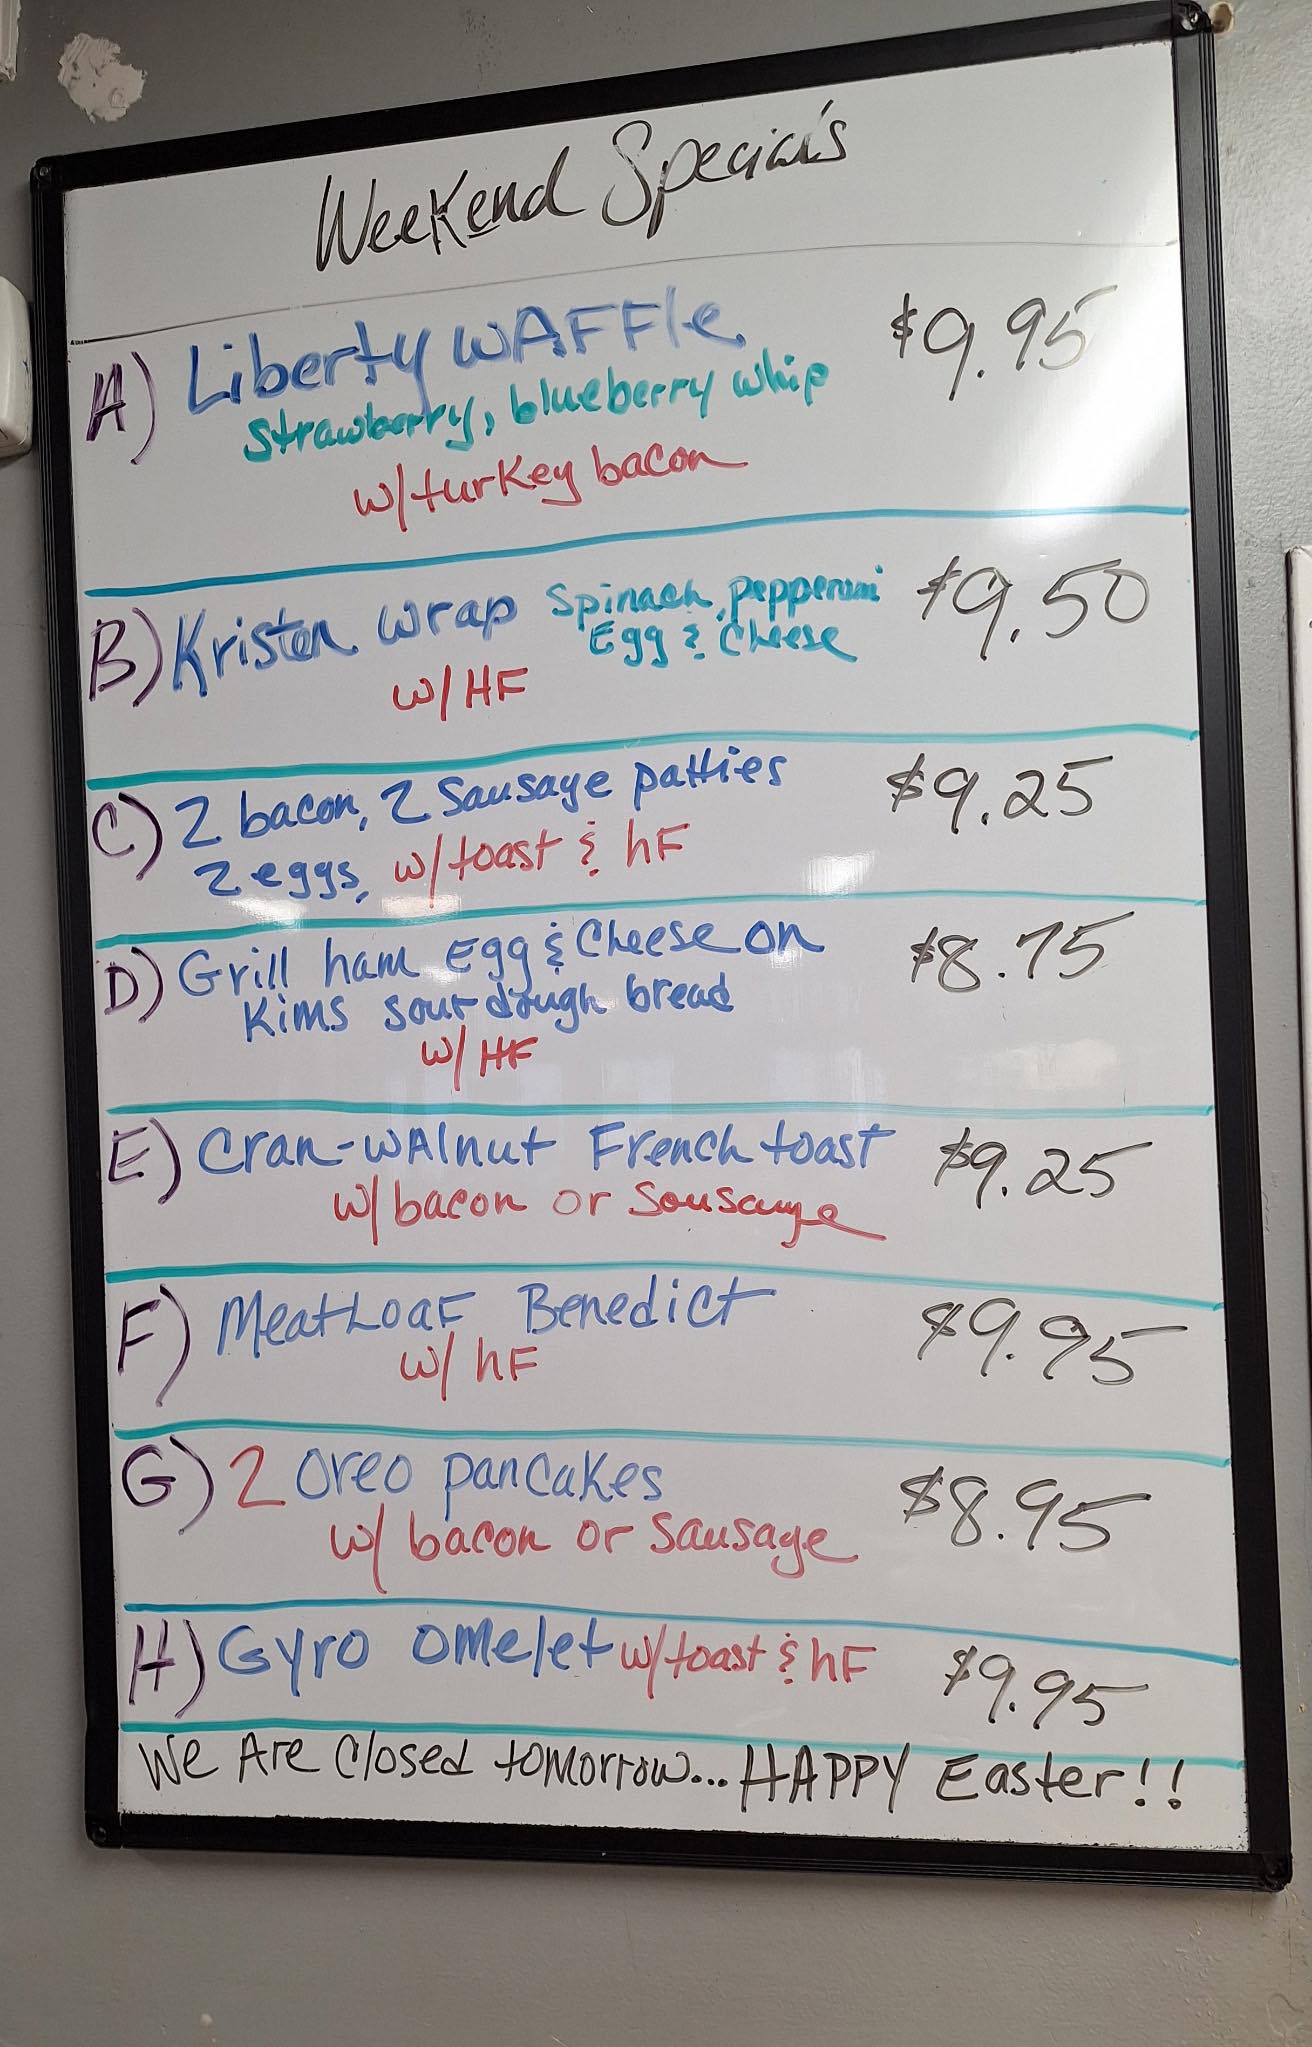 Weekend Specials
A) Liberty WAFFle $9.95
Strawberry, blueberry whip
w/turkey bacon
B) Kristen wrap Spinach, pepperoni $9.50
Egg & Cheese
w/HF
C) 2 bacon, 2 Sausage patties $9.25
2 eggs, w/toast & hF
D) Grill ham Egg & Cheese on $8.75
Kims sourdough bread
w/HF
E) Cran-WAlnut French toast $9.25
w/bacon or Sousauge
F) MeatLoaF Benedict $9.95
w/hF
G) 2 Oreo pancakes $8.95
w/ bacon or Sausage
H) Gyro omelet w/toast & hF $9.95
We Are Closed tomorrow... HAPPY Easter!!